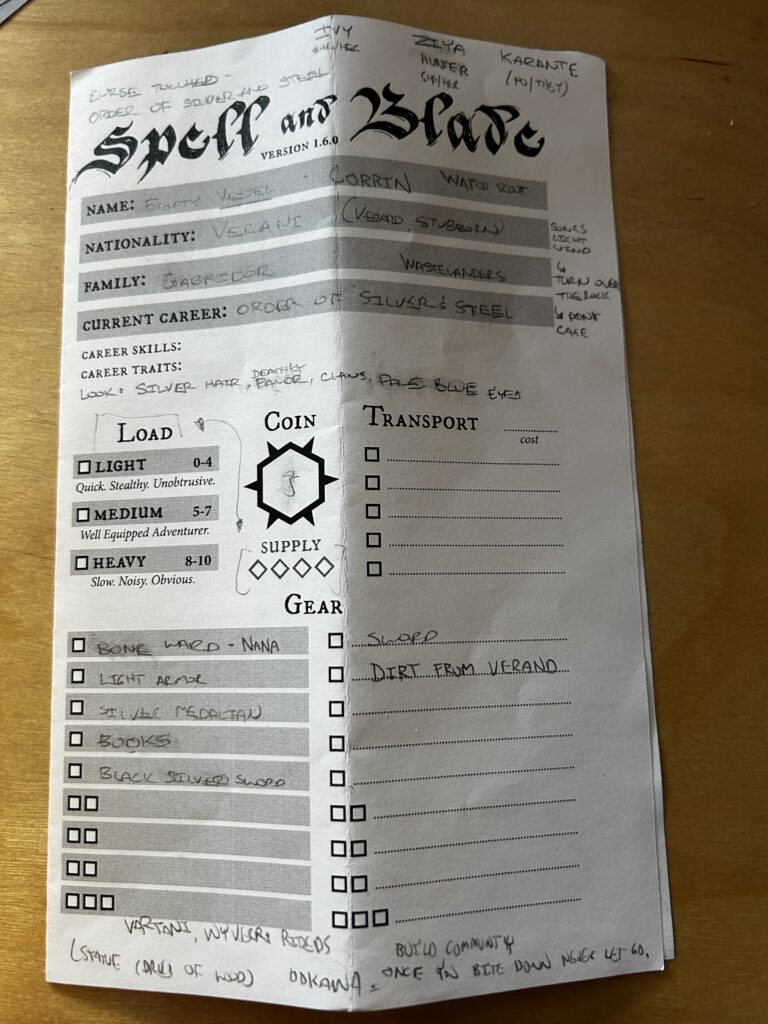 IVY
SHE/HER
ZIYA
HUNTER
SHE/HER
KARANTE
(HE/THEY)
CURSE TOUCHED -
ORDER OF SILVER AND STEEL
Spell and Blade
VERSION 1.6.0
NAME: EMPTY VESSEL - CORRIN WATCH SCOUT
NATIONALITY: VERANI (VERAND, STUBBORN)
FAMILY: WASTELANDERS
CURRENT CAREER: ORDER OF SILVER & STEEL
SONGS
LIGHT
WIND
TURN OVER
THE ROCK
DON'T
CARE
CAREER SKILLS:
CAREER TRAITS:
LOOK: SILVER HAIR, DEATHLY PALOR, CLAWS, PALE BLUE EYES
LOAD
LIGHT 0-4
Quick. Stealthy. Unobtrusive.
MEDIUM 5-7
Well Equipped Adventurer.
HEAVY 8-10
Slow. Noisy. Obvious.
COIN
SUPPLY
TRANSPORT
cost
GEAR
BONE WARD - NANA
LIGHT ARMOR
SILVER MEDALIAN
BOOKS
BLACK SILVER SWORD
SWORD
DIRT FROM VERAND
VARTANI, WYVERN RIDERS
(STATUE (DRUID OF WOOD)
BUILD COMMUNTY
ODKAWA - ONCE YOU BITE DOWN NEVER LET GO.